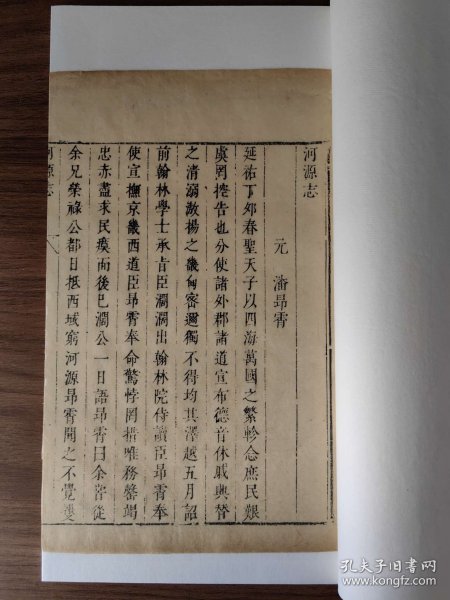 河源志
元 潘昂霄
延祐丁夘春聖天子以四海萬國之繁軫念庶民艱
虞罔控告也分使諸外郡諸道宣布德音休戚與替
之清溺敭揚之畿甸密邇獨不得均其澤越五月詔
前翰林學士承旨臣濶濶出翰林院侍讀臣昂霄奉
使宣撫京畿西道臣昂霄奉命驚悸罔措唯務罄竭
忠赤盡求民瘼而後已濶公一日語昂霄曰余嘗從
余兄榮祿公都日抵西域窮河源昂霄聞之不覺㕠
河源志
孔夫子旧书网
book.kongfz.com